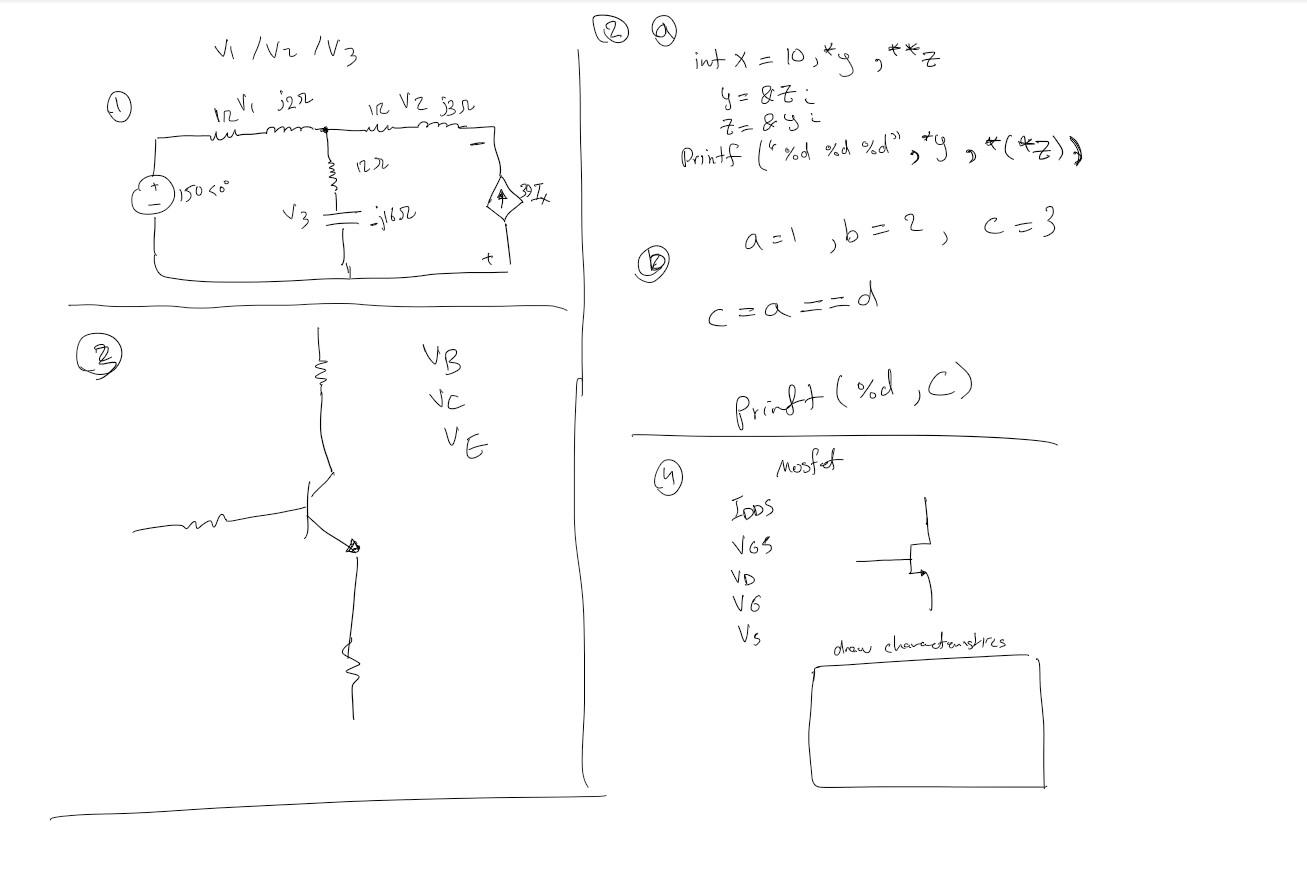 V1 / V2 / V3
①
1Ω V1 j2Ω
1Ω V2 j3Ω
+
−
150<0°
12Ω
V3
-j16Ω
−
39Ix
+
② ⓐ
int x = 10, *y , **z
y = &z;
z = &y;
Printf ("%d %d %d", *y , *(*z))
ⓑ
a = 1 , b = 2 , c = 3
c = a == d
Prinft (%d , C)
③
VB
VC
VE
④
Mosfet
IDDS
VGS
VD
VG
VS
draw characteristics